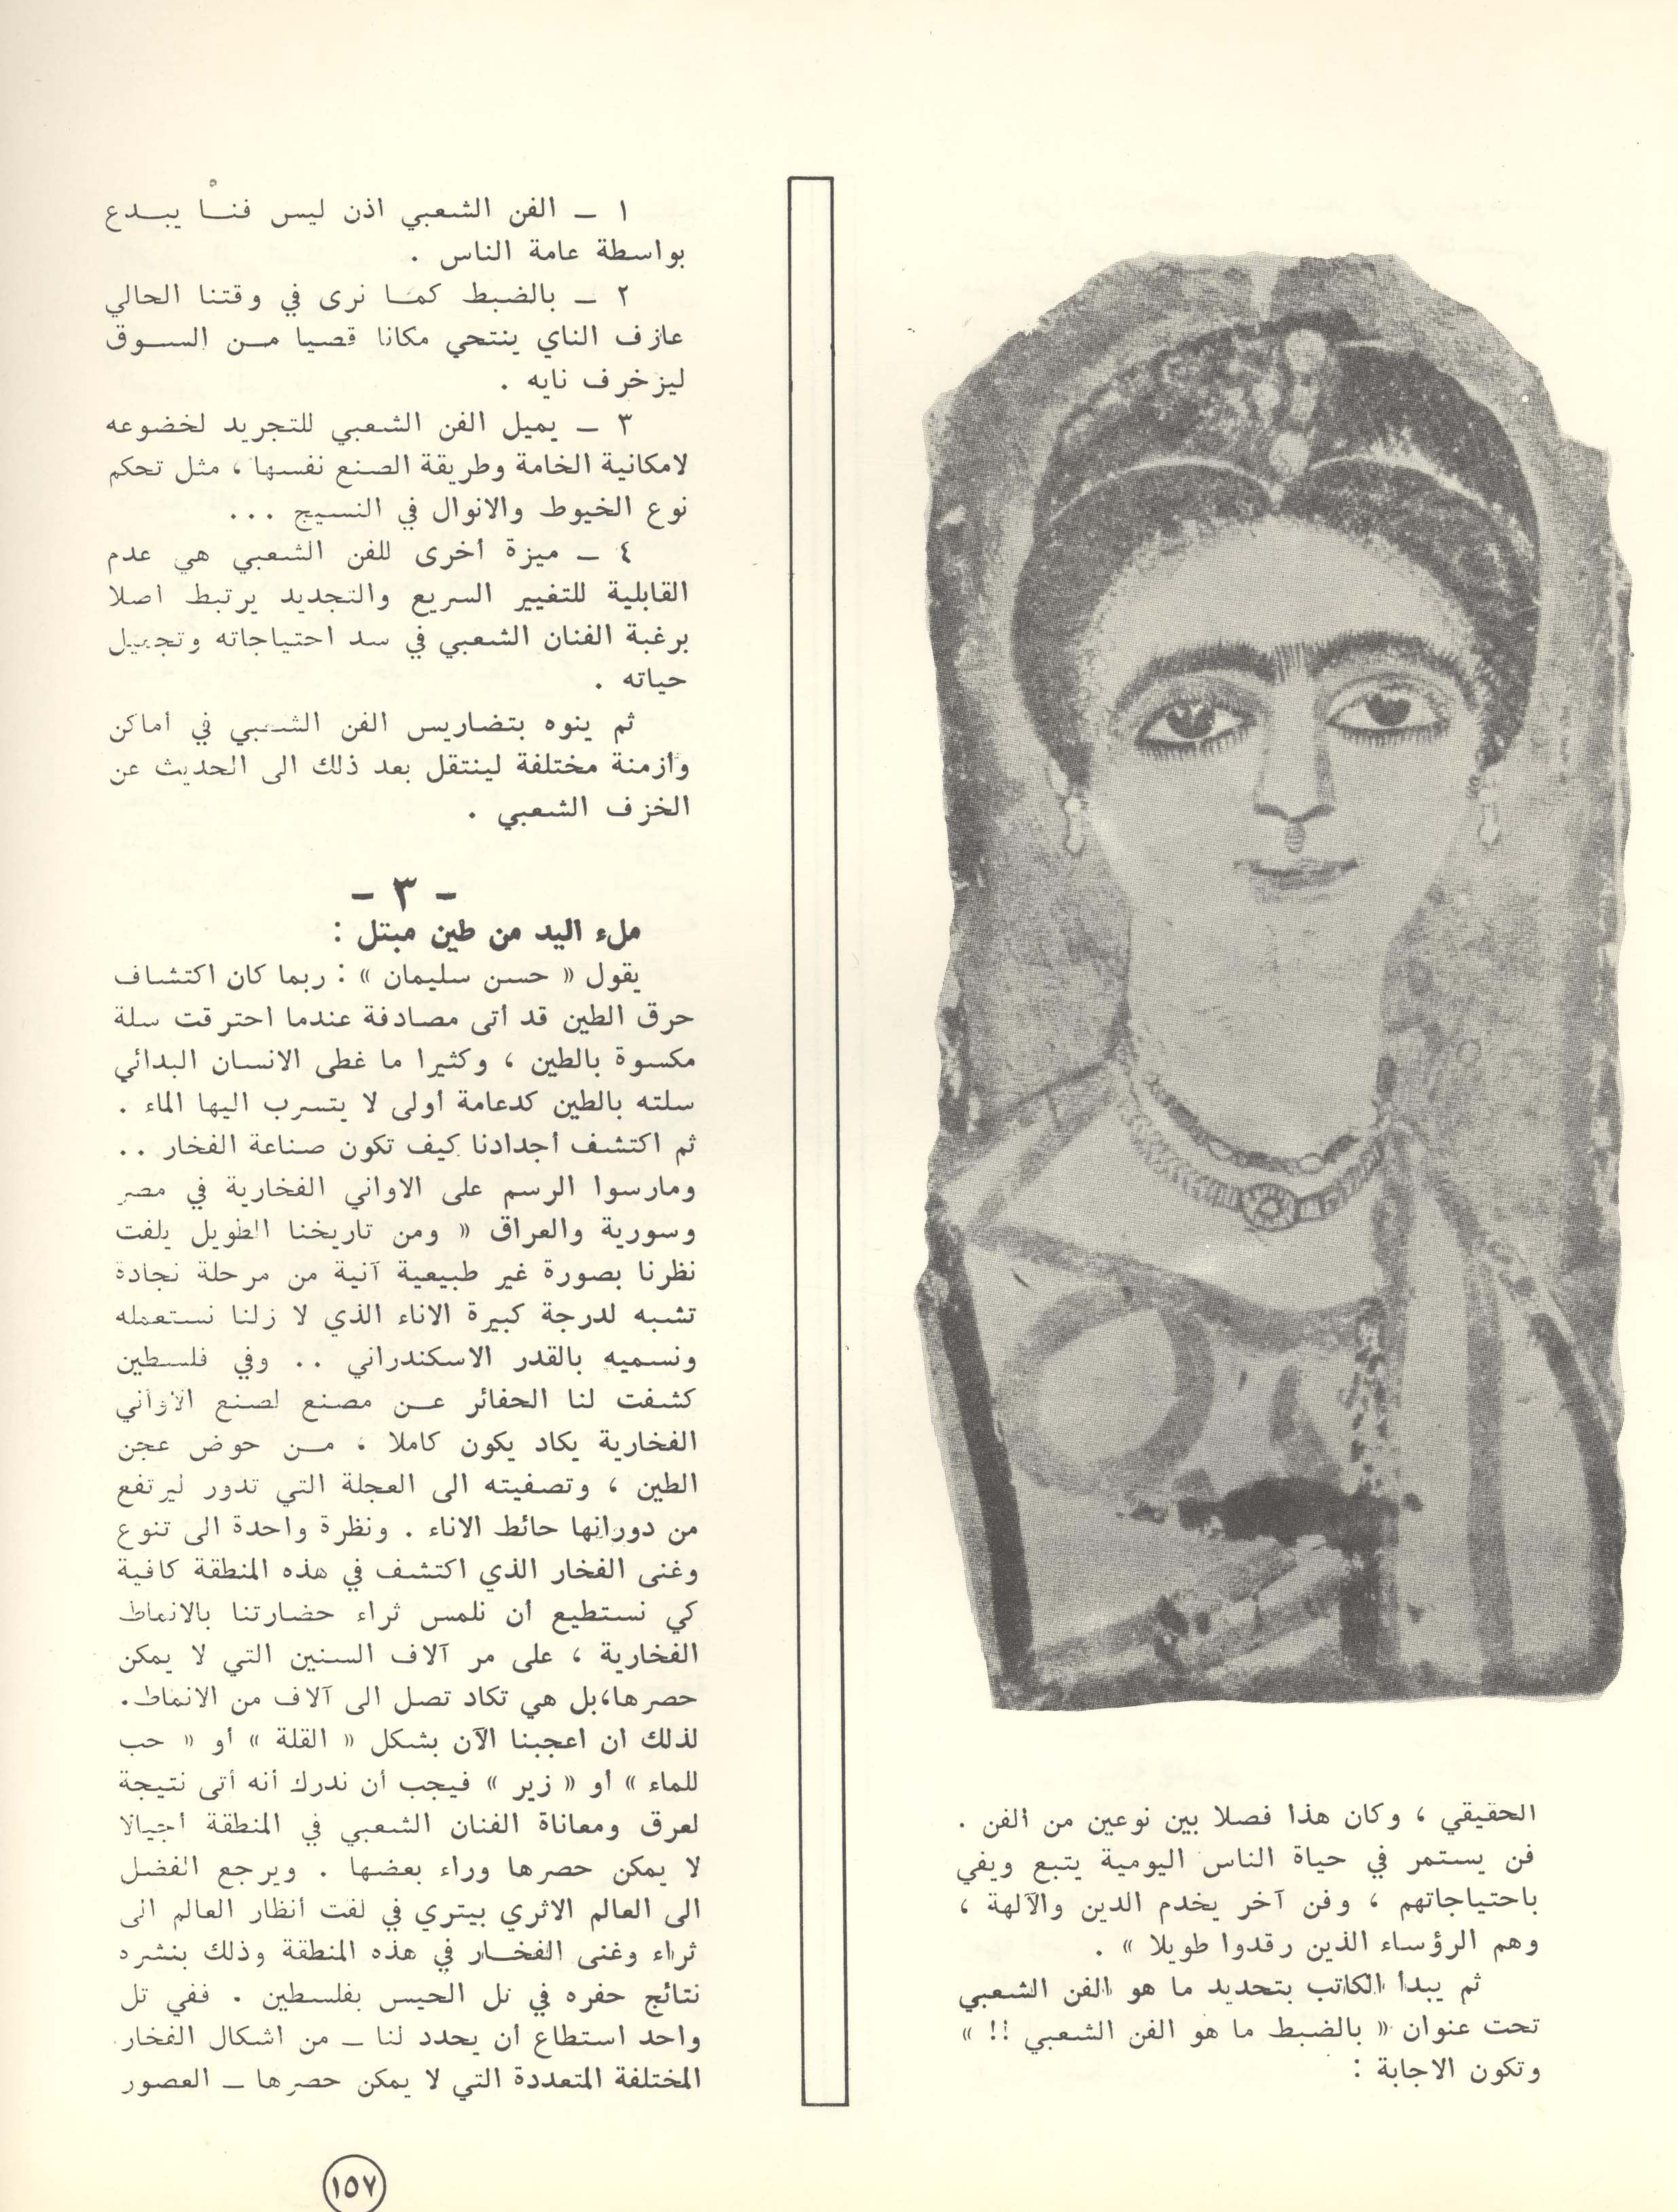 الحقيقي ، وكان هذا فصلا بين نوعين من الفن .
فن يستمر في حياة الناس اليومية يتبع ويفي
باحتياجاتهم ، وفن آخر يخدم الدين والآلهة ،
وهم الرؤساء الذين رقدوا طويلا » .
ثم يبدأ الكاتب بتحديد ما هو الفن الشعبي
تحت عنوان « بالضبط ما هو الفن الشعبي !! »
وتكون الاجابة :
١ ــ الفن الشعبي اذن ليس فنا يبدع
بواسطة عامة الناس .
٢ ــ بالضبط كما نرى في وقتنا الحالي
عازف الناي ينتحي مكانا قصيا من السوق
ليزخرف نايه .
٣ ــ يميل الفن الشعبي للتجريد لخضوعه
لامكانية الخامة وطريقة الصنع نفسها ، مثل تحكم
نوع الخيوط والانوال في النسيج ...
٤ ــ ميزة أخرى للفن الشعبي هي عدم
القابلية للتغيير السريع والتجديد يرتبط أصلا
برغبة الفنان الشعبي في سد احتياجاته وتجميل
حياته .
ثم ينوه بتضاريس الفن الشعبي في أماكن
وأزمنة مختلفة لينتقل بعد ذلك الى الحديث عن
الخزف الشعبي .
ـ ٣ ـ
ملء اليد من طين مبتل :
يقول « حسن سليمان » : ربما كان اكتشاف
حرق الطين قد أتى مصادفة عندما احترقت سلة
مكسوة بالطين ، وكثيرا ما غطى الانسان البدائي
سلته بالطين كدعامة أولى لا يتسرب اليها الماء .
ثم اكتشف أجدادنا كيف تكون صناعة الفخار ..
ومارسوا الرسم على الاواني الفخارية في مصر
وسورية والعراق « ومن تاريخنا الطويل يلفت
نظرنا بصورة غير طبيعية آنية من مرحلة نجادة
تشبه لدرجة كبيرة الاناء الذي لا زلنا نستعمله
ونسميه بالقدر الاسكندراني .. وفي فلسطين
كشفت لنا الحفائر عن مصنع لصنع الاواني
الفخارية يكاد يكون كاملا ، من حوض عجن
الطين ، وتصفيته الى العجلة التي تدور ليرتفع
من دورانها حائط الاناء . ونظرة واحدة الى تنوع
وغنى الفخار الذي اكتشف في هذه المنطقة كافية
كي نستطيع أن نلمس ثراء حضارتنا بالانماط
الفخارية ، على مر آلاف السنين التي لا يمكن
حصرها،بل هي تكاد تصل الى آلاف من الانماط.
لذلك ان اعجبنا الآن بشكل « القلة » أو « حب
للماء » أو « زير » فيجب أن ندرك أنه أتى نتيجة
لعرق ومعاناة الفنان الشعبي في المنطقة أجيالا
لا يمكن حصرها وراء بعضها . ويرجع الفضل
الى العالم الاثري بيتري في لفت أنظار العالم الى
ثراء وغنى الفخار في هذه المنطقة وذلك بنشره
نتائج حفره في تل الحيس بفلسطين . ففي تل
واحد استطاع أن يحدد لنا ــ من أشكال الفخار
المختلفة المتعددة التي لا يمكن حصرها ــ العصور
١٥٧